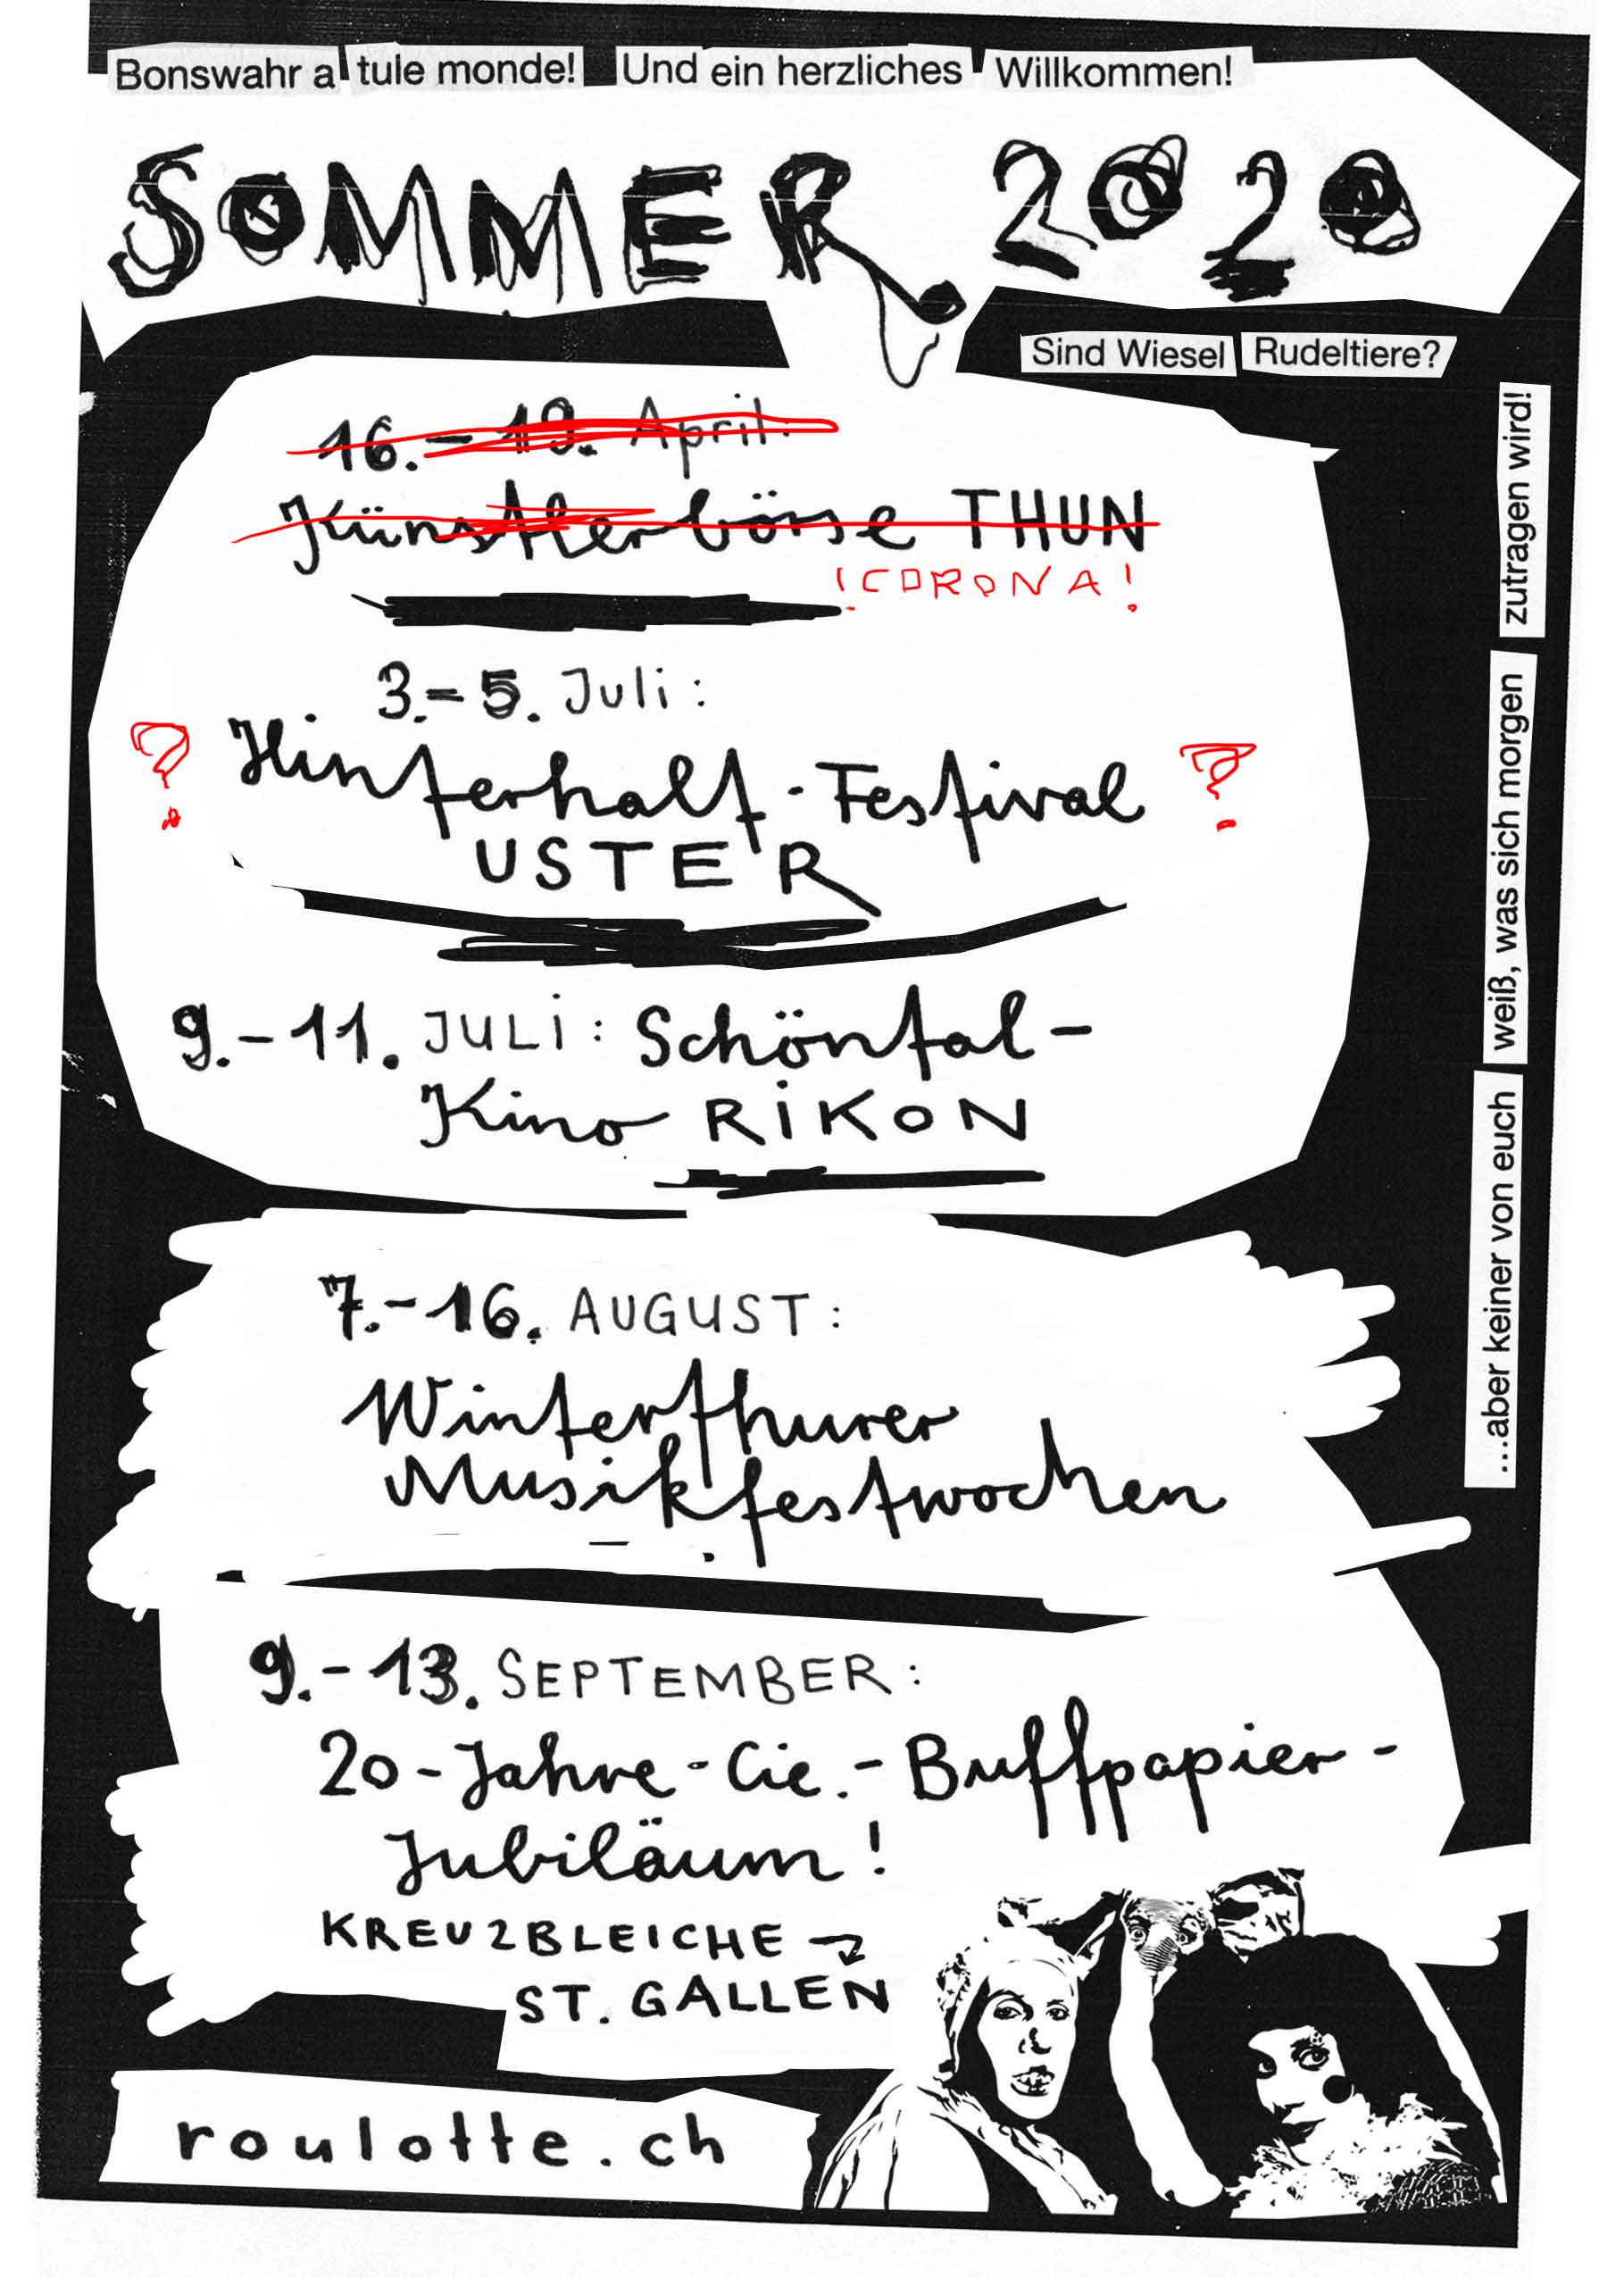 Bonswahr a tule monde! Und ein herzliches Willkommen!
SOMMER 2020
Sind Wiesel Rudeltiere?
16.-19. April:
Künstlerbörse THUN
!CORONA!
3.-5. Juli:
? Hinterhalt-Festival ?
USTER
9.-11. JULI: Schöntal-
Kino RIKON
7.-16. AUGUST:
Winterthurer
Musikfestwochen
9.-13. SEPTEMBER:
20-Jahre-Cie.-Buffpapier-
Jubiläum!
KREUZBLEICHE
ST. GALLEN
roulotte.ch
...aber keiner von euch weiß, was sich morgen zutragen wird!